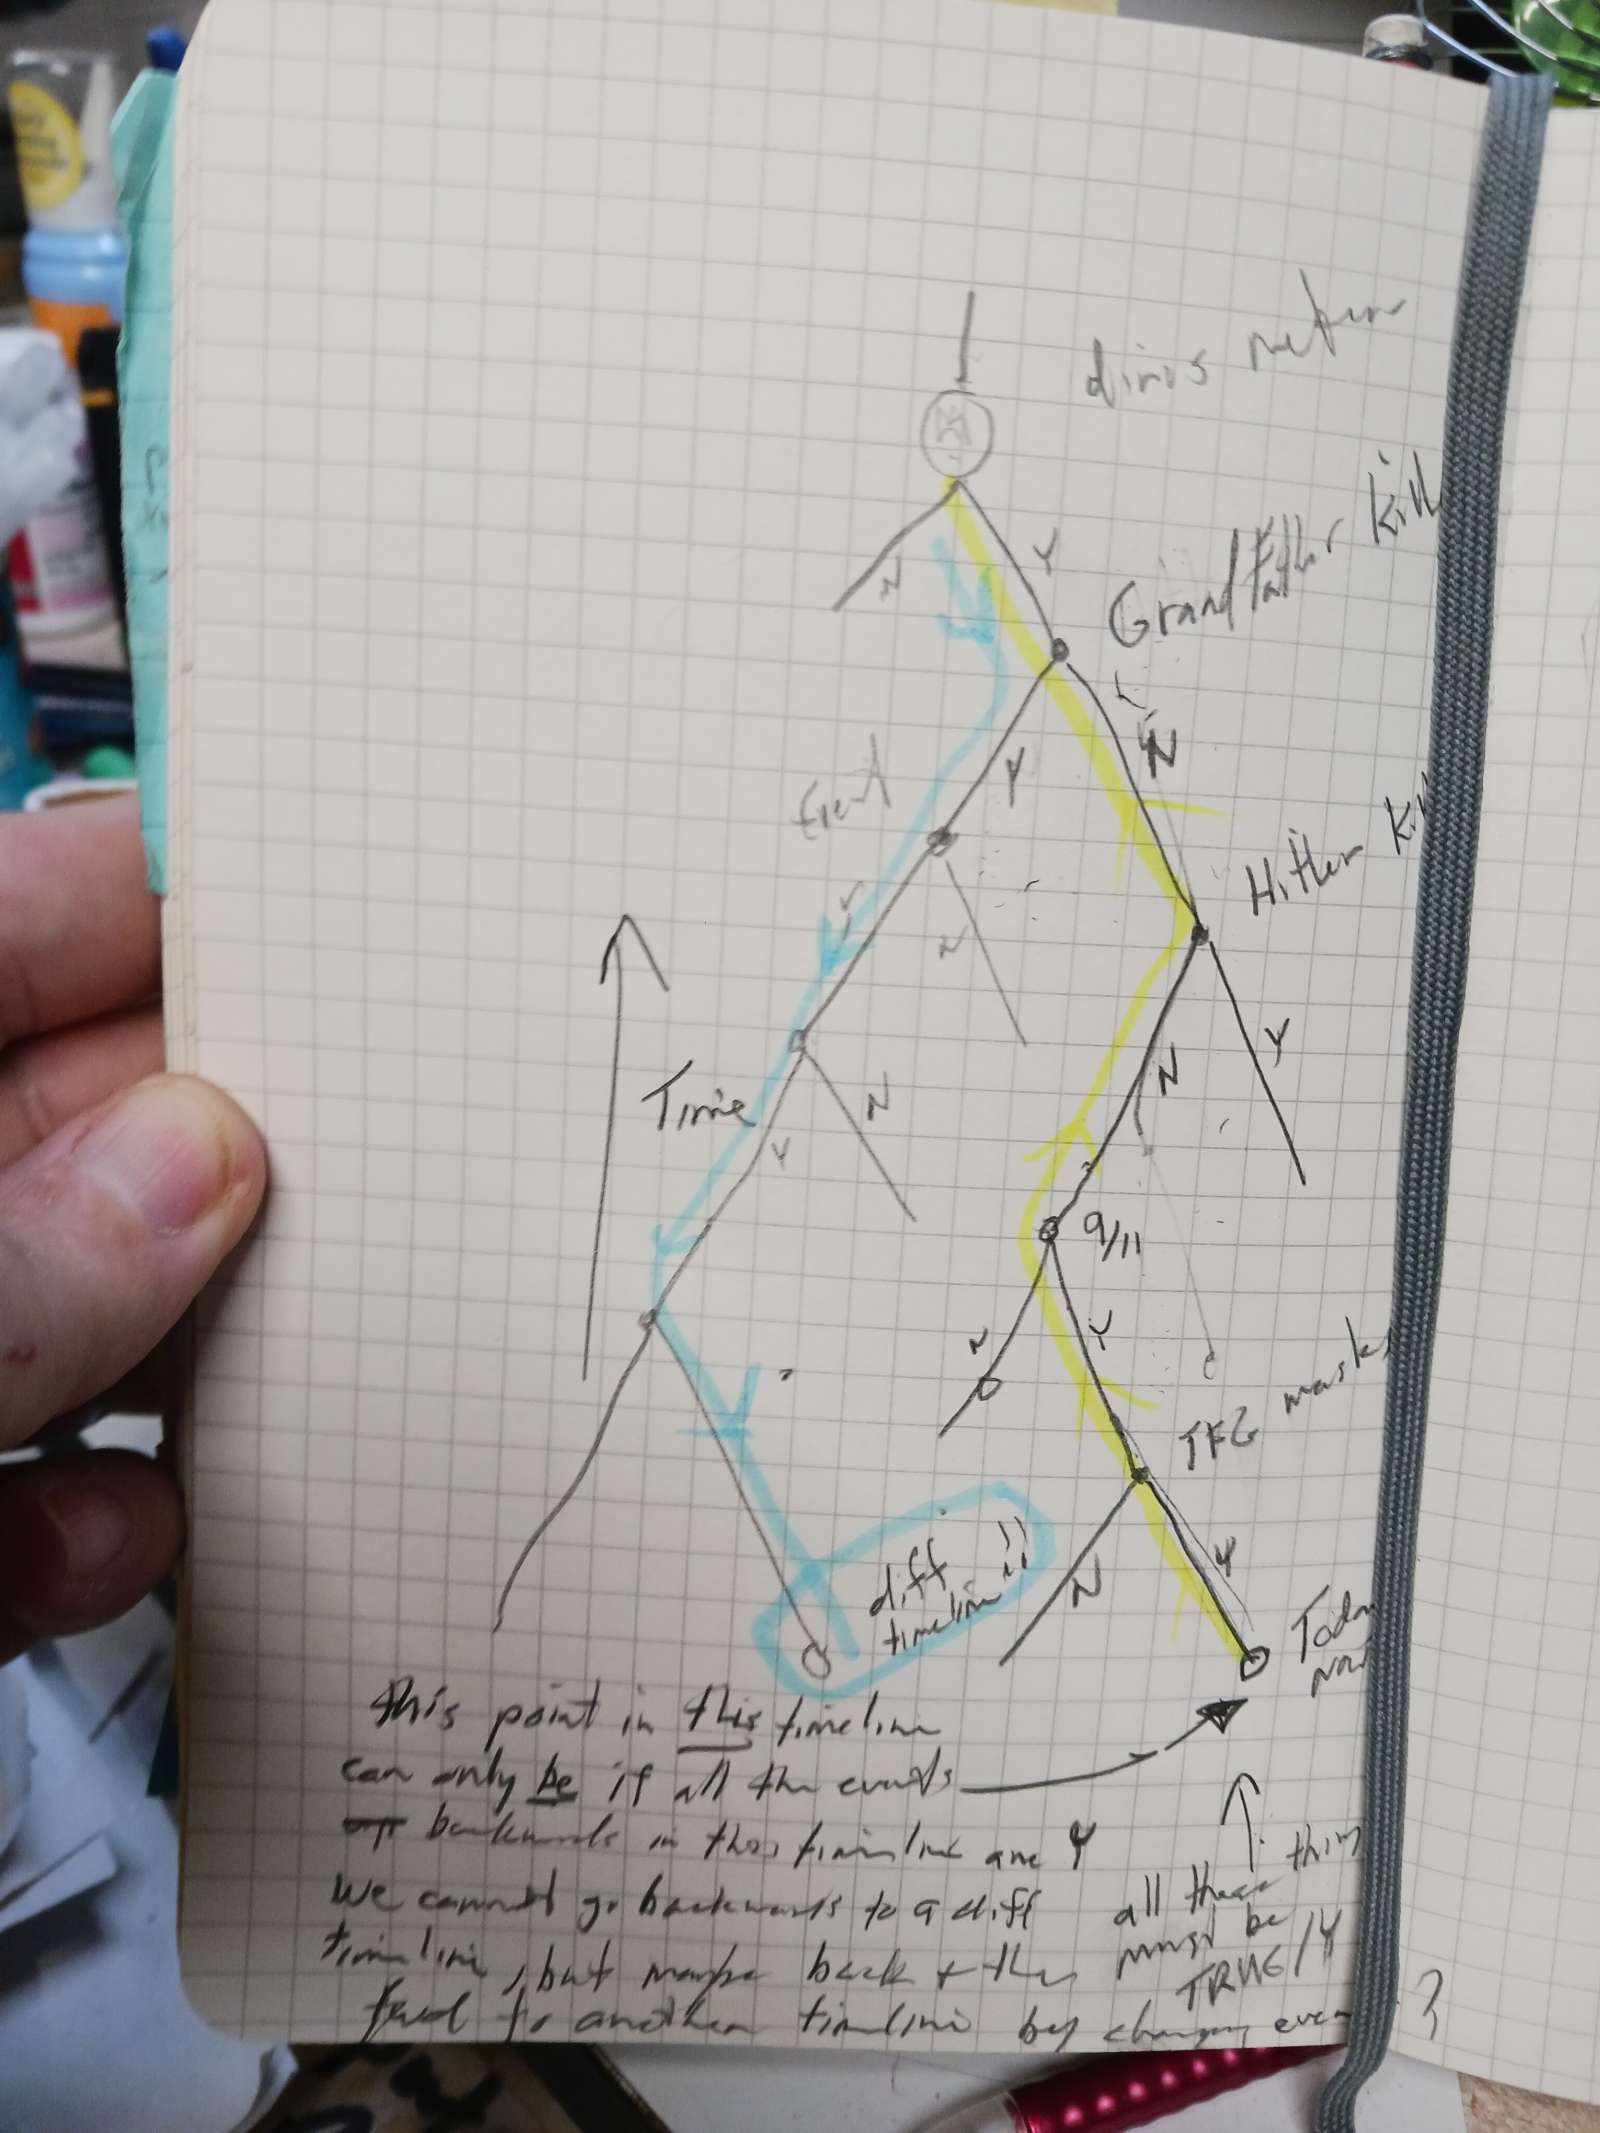 dinos meteor
N
Y
Grandfather Kill
Y
N
Event
Hitler Kill
Y
N
N
Y
Time
N
Y
9/11
N
Y
TFG masks
N
Y
diff
timeline
Today
now
this point in this timeline
can only be if all the events
backwards in this timeline are Y
We cannot go backwards to a diff
timeline, but maybe back + then
fwd to another timeline by changing even ?
all these thing
must be
TRUE/Y